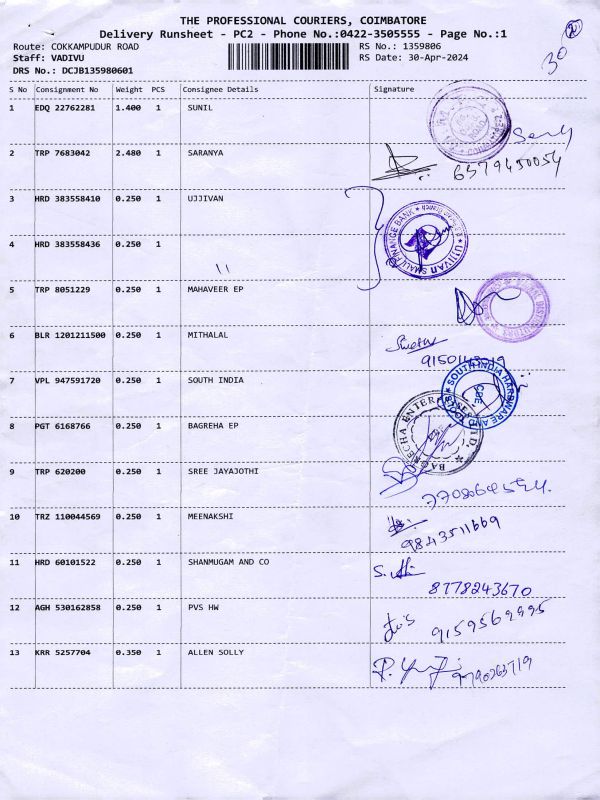 THE PROFESSIONAL COURIERS, COIMBATORE
Delivery Runsheet - PC2 - Phone No.:0422-3505555 - Page No.:1
Route: COKKAMPUDUR ROAD RS No.: 1359806
Staff: VADIVU RS Date: 30-Apr-2024
DRS No.: DCJB135980601
30
S No Consignment No Weight PCS Consignee Details Signature
1 EDQ 22762281 1.400 1 SUNIL
2 TRP 7683042 2.480 1 SARANYA
6379450054
3 HRD 383558410 0.250 1 UJJIVAN
UJJIVAN SMALL FINANCE BANK
4 HRD 383558436 0.250 1
\\
5 TRP 8051229 0.250 1 MAHAVEER EP
6 BLR 1201211500 0.250 1 MITHALAL
7 VPL 947591720 0.250 1 SOUTH INDIA
SOUTH INDIA HARDWARE AND TOOLS
CBE
8 PGT 6168766 0.250 1 BAGREHA EP
9 TRP 620200 0.250 1 SREE JAYAJOTHI
10 TRZ 110044569 0.250 1 MEENAKSHI
9843511669
11 HRD 60101522 0.250 1 SHANMUGAM AND CO
8778243670
12 AGH 530162858 0.250 1 PVS HW
9159569995
13 KRR 5257704 0.350 1 ALLEN SOLLY
9790263719